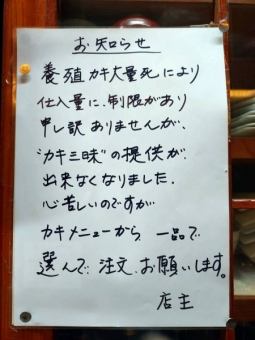 お知らせ
養殖カキ大量死により
仕入量に、制限があり
申し訳ありませんが、
"カキ三昧"の提供が
出来なくなりました。
心苦しいのですが
カキメニューから 一品で
選んで 注文、お願いします。
店主